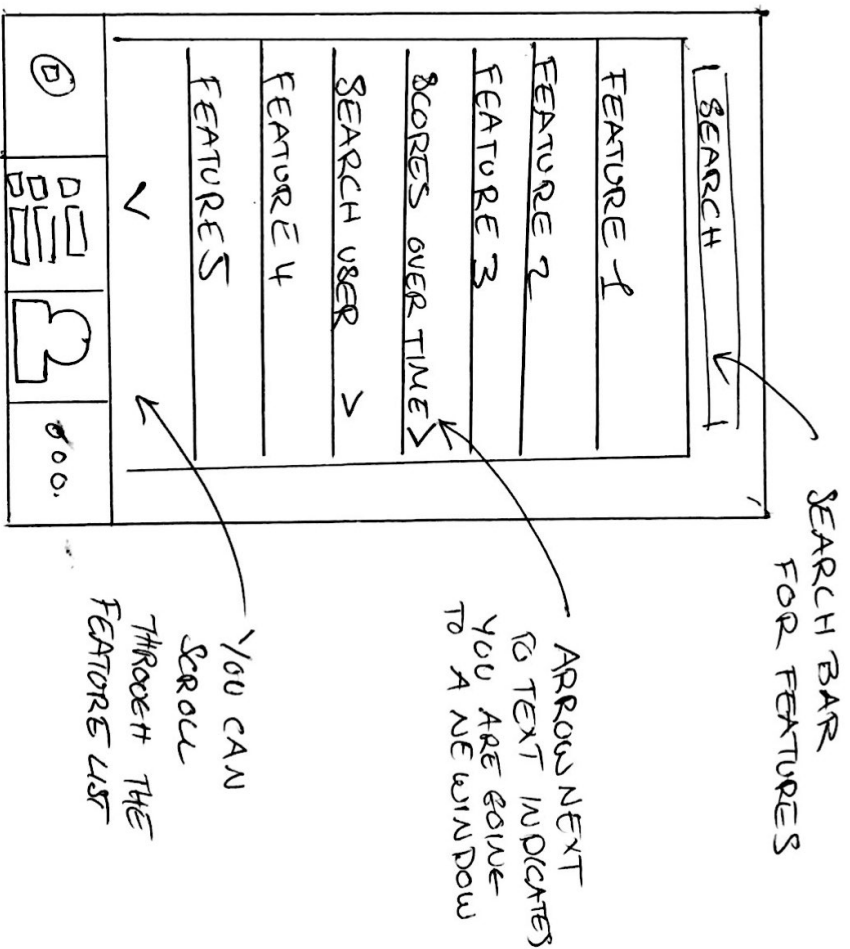 SEARCH
FEATURE 1
FEATURE 2
FEATURE 3
SCORES OVER TIME >
SEARCH USER >
FEATURE 4
FEATURE 5
SEARCH BAR
FOR FEATURES
ARROW NEXT
TO TEXT INDICATES
YOU ARE GOING
TO A NEW WINDOW
YOU CAN
SCROLL
THROUGH THE
FEATURE LIST